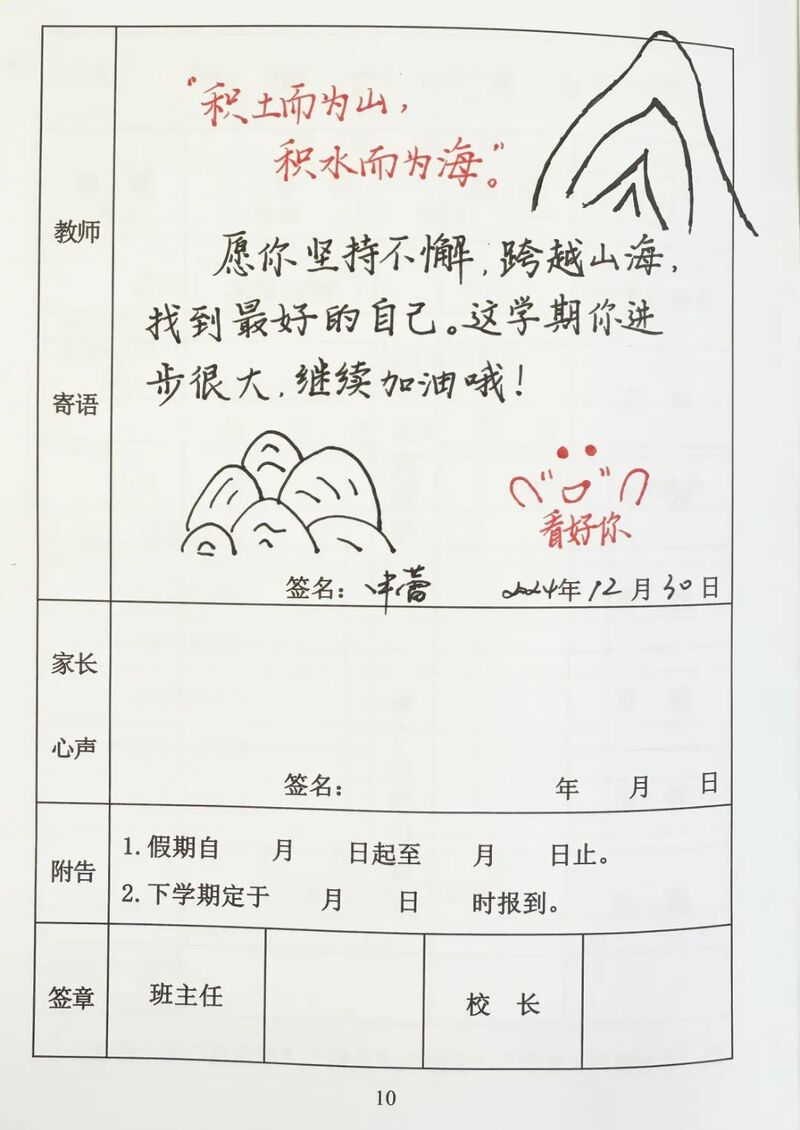 "积土而为山，
积水而为海"。
教师
寄语
愿你坚持不懈，跨越山海，
找到最好的自己。这学期你进
步很大，继续加油哦！
看好你
签名： 2024年12月30日
家长
心声
签名： 年 月 日
附告
1.假期自 月 日起至 月 日止。
2.下学期定于 月 日 时报到。
签章
班主任
校 长
10